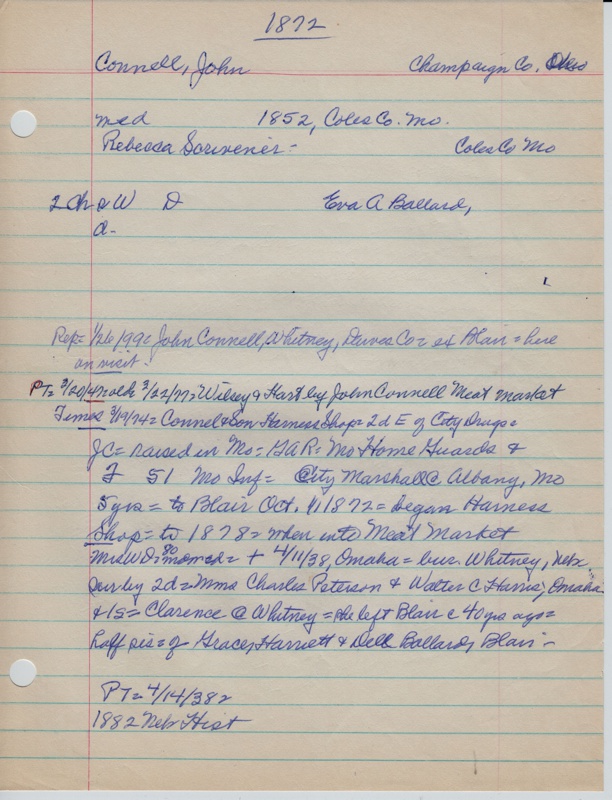 1872
Connell, John Champaign Co. Ohio
med 1852, Coles Co. Mo.
Rebecca Scrivener - Coles Co Mo
2 Ch & W D Eva A Ballard,
d-
Rep= 1/26/99= John Connell, Whitney, Dawes Co= ex Blair = here
on visit.
PT= 3/20/47= 3/22/77= Wilsey & Hart by John Connell Meat Market
Times 3/19/74= Connel & Son Harness Shop= 2d E of City Drugs=
JC= raised in Mo= GAR= Mo Home Guards &
51 Mo Inf= City Marshall @ Albany, Mo
5 yrs = to Blair Oct. 1872 = began Harness
Shop= to 1878= when into Meat Market
Mrs W D= 80 = + 4/11/38, Omaha = bur. Whitney, Nebr.
sur by 2d= Mmes Charles Peterson & Walter C Harris, Omaha
& 1s= Clarence @ Whitney = she left Blair c 40 yrs ago=
half sis= of Grace, Harriett & Dell Ballard, Blair -
PT= 4/14/38=
1882 Nebr Hist